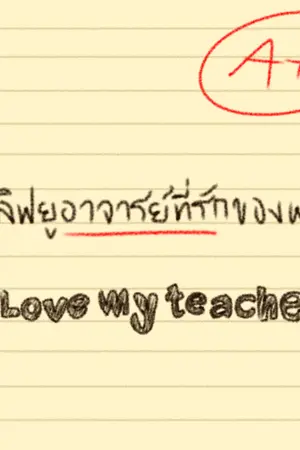 A+
ลิฟยูอาจารย์ที่รักของ
Love my teache